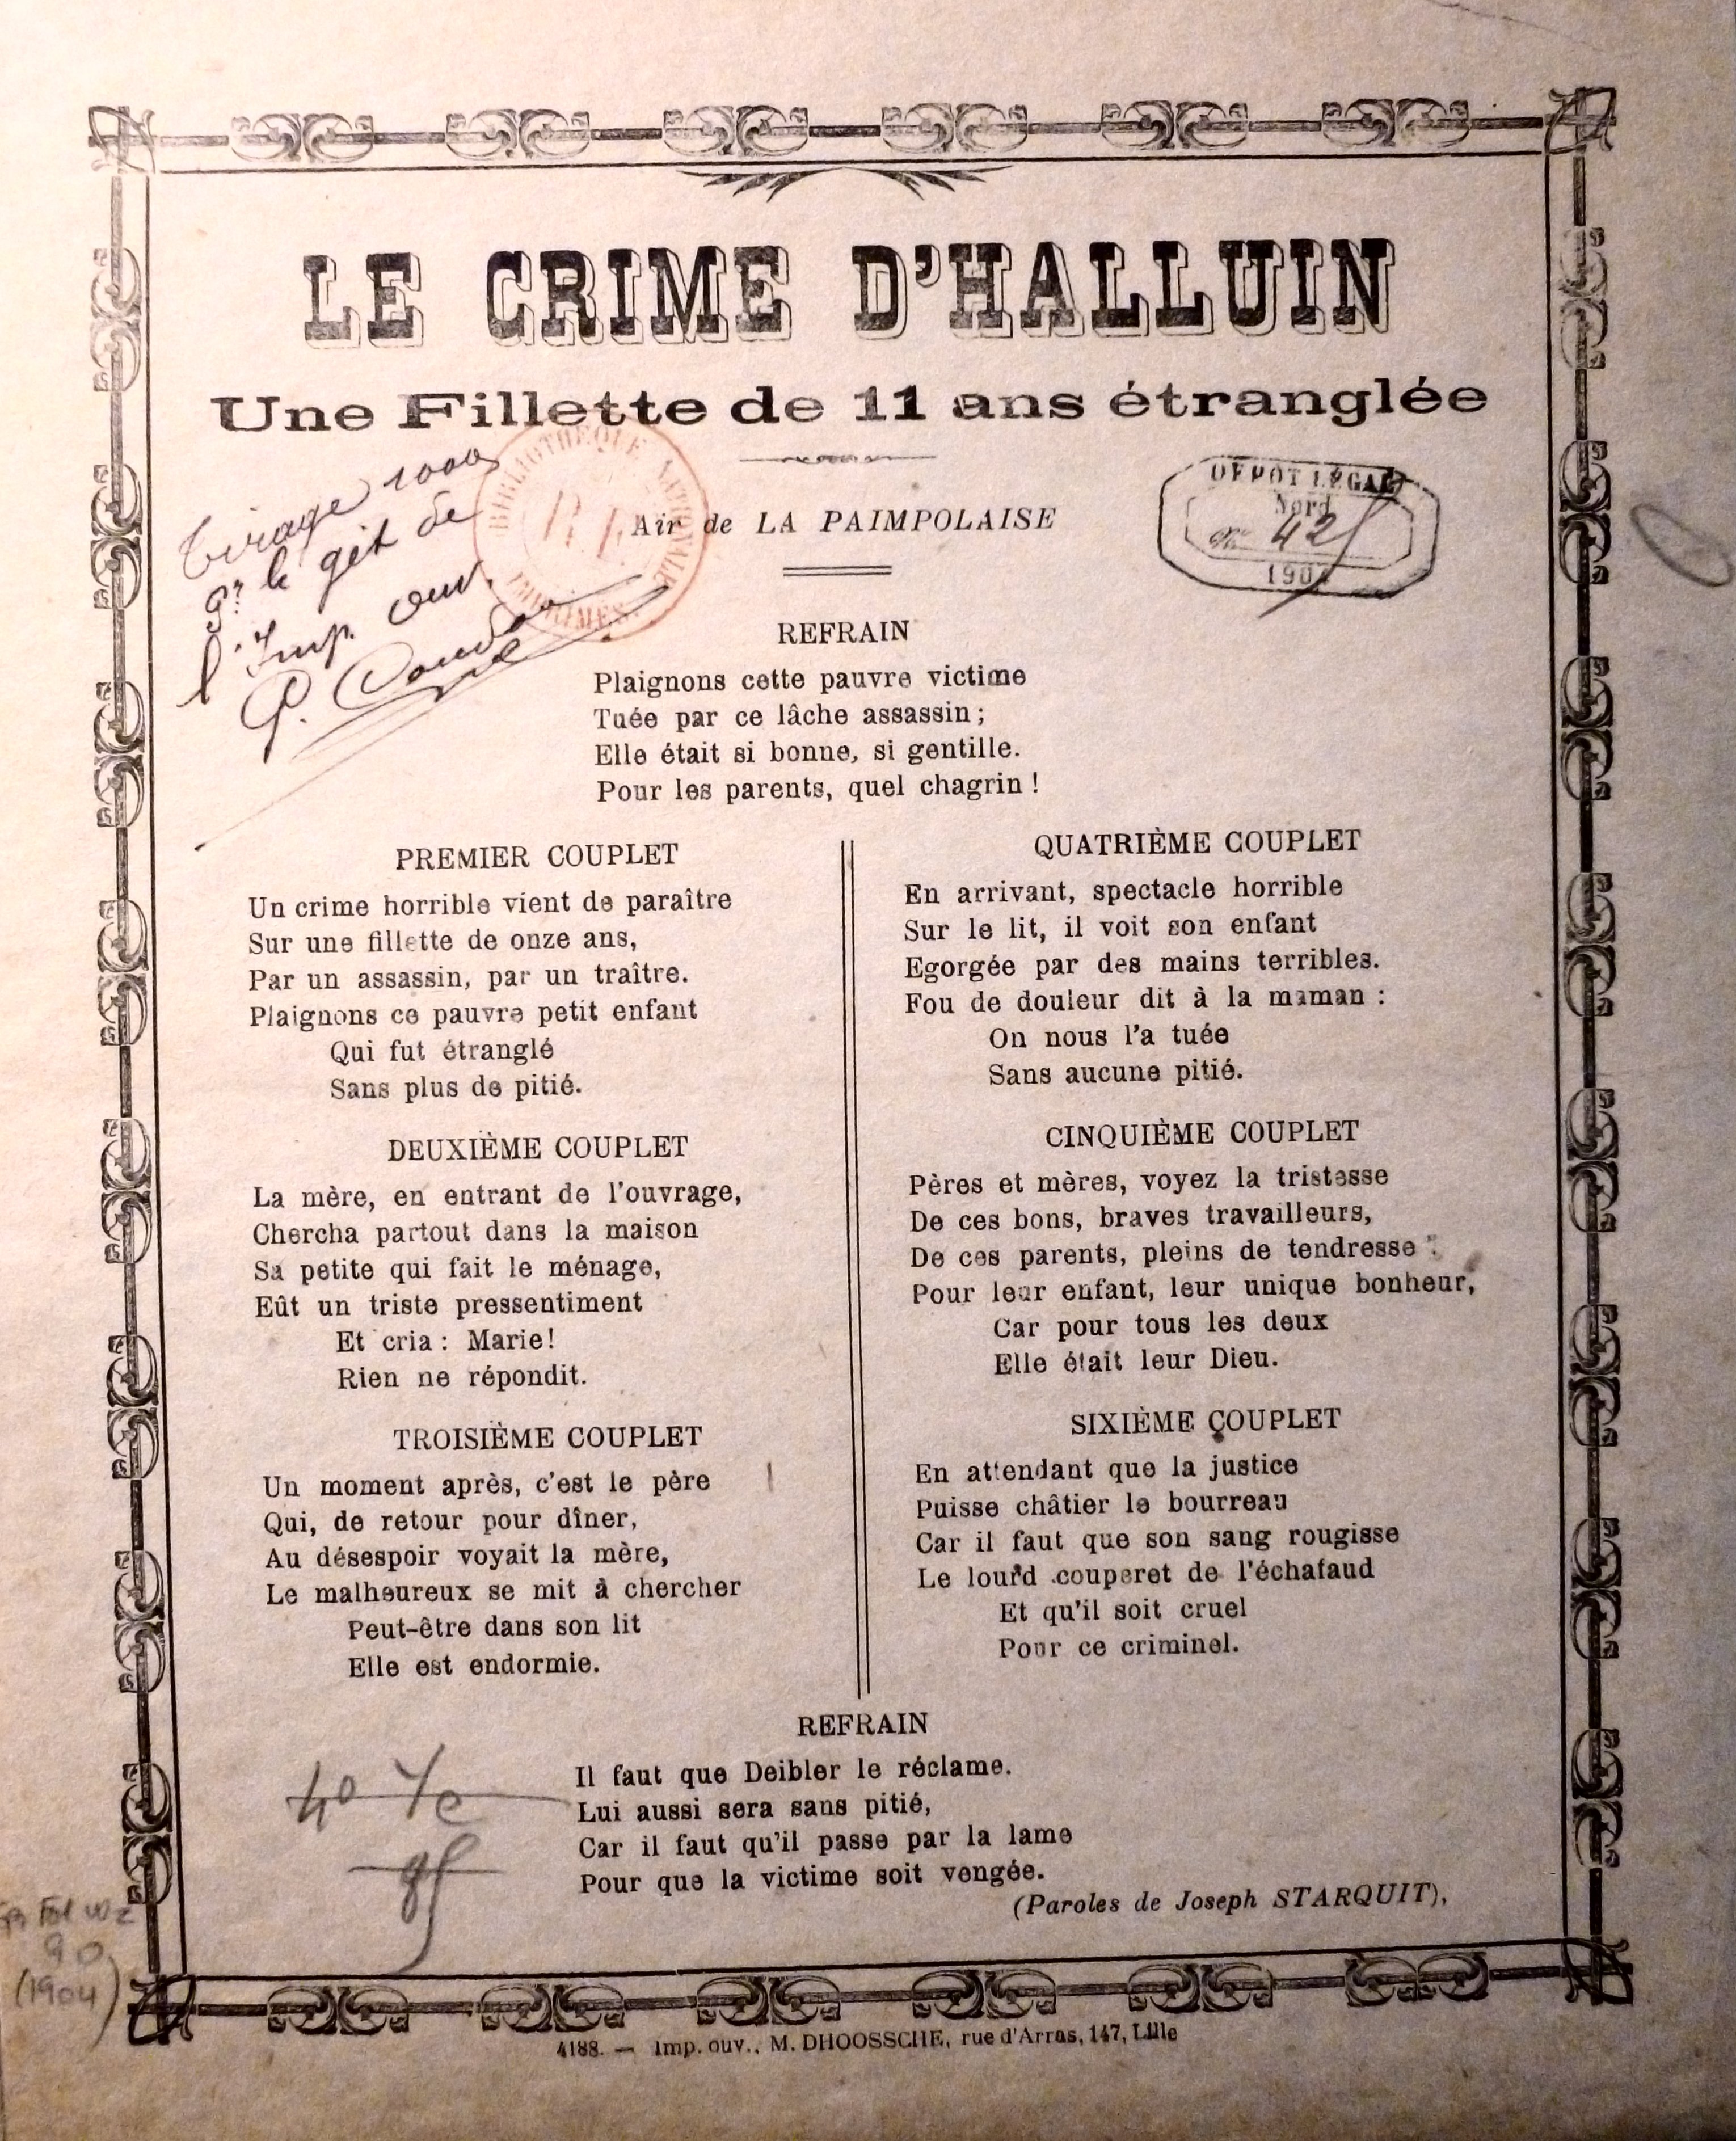 LE CRIME D'HALLUIN
Une Fillette de 11 ans étranglée
Tirage 1000
Pr le gét de
l'Imp. ouv.
BIBLIOTHÈQUE NATIONALE
IMPRIMÉS
DÉPÔT LÉGAL
Nord
42
190
Air de LA PAIMPOLAISE
REFRAIN
Plaignons cette pauvre victime
Tuée par ce lâche assassin ;
Elle était si bonne, si gentille.
Pour les parents, quel chagrin !
PREMIER COUPLET
Un crime horrible vient de paraître
Sur une fillette de onze ans,
Par un assassin, par un traître.
Plaignons ce pauvre petit enfant
Qui fut étranglé
Sans plus de pitié.
DEUXIÈME COUPLET
La mère, en entrant de l'ouvrage,
Chercha partout dans la maison
Sa petite qui fait le ménage,
Eût un triste pressentiment
Et cria : Marie !
Rien ne répondit.
TROISIÈME COUPLET
Un moment après, c'est le père
Qui, de retour pour dîner,
Au désespoir voyait la mère,
Le malheureux se mit à chercher
Peut-être dans son lit
Elle est endormie.
QUATRIÈME COUPLET
En arrivant, spectacle horrible
Sur le lit, il voit son enfant
Egorgée par des mains terribles.
Fou de douleur dit à la maman :
On nous l'a tuée
Sans aucune pitié.
CINQUIÈME COUPLET
Pères et mères, voyez la tristesse
De ces bons, braves travailleurs,
De ces parents, pleins de tendresse
Pour leur enfant, leur unique bonheur,
Car pour tous les deux
Elle était leur Dieu.
SIXIÈME COUPLET
En attendant que la justice
Puisse châtier le bourreau
Car il faut que son sang rougisse
Le lourd couperet de l'échafaud
Et qu'il soit cruel
Pour ce criminel.
REFRAIN
Il faut que Deibler le réclame.
Lui aussi sera sans pitié,
Car il faut qu'il passe par la lame
Pour que la victime soit vengée.
(Paroles de Joseph STARQUIT),
4º Ye
Fol Wz
90
(1904)
4188. — Imp. ouv., M. DHOOSSCHE, rue d'Arras, 147, Lille